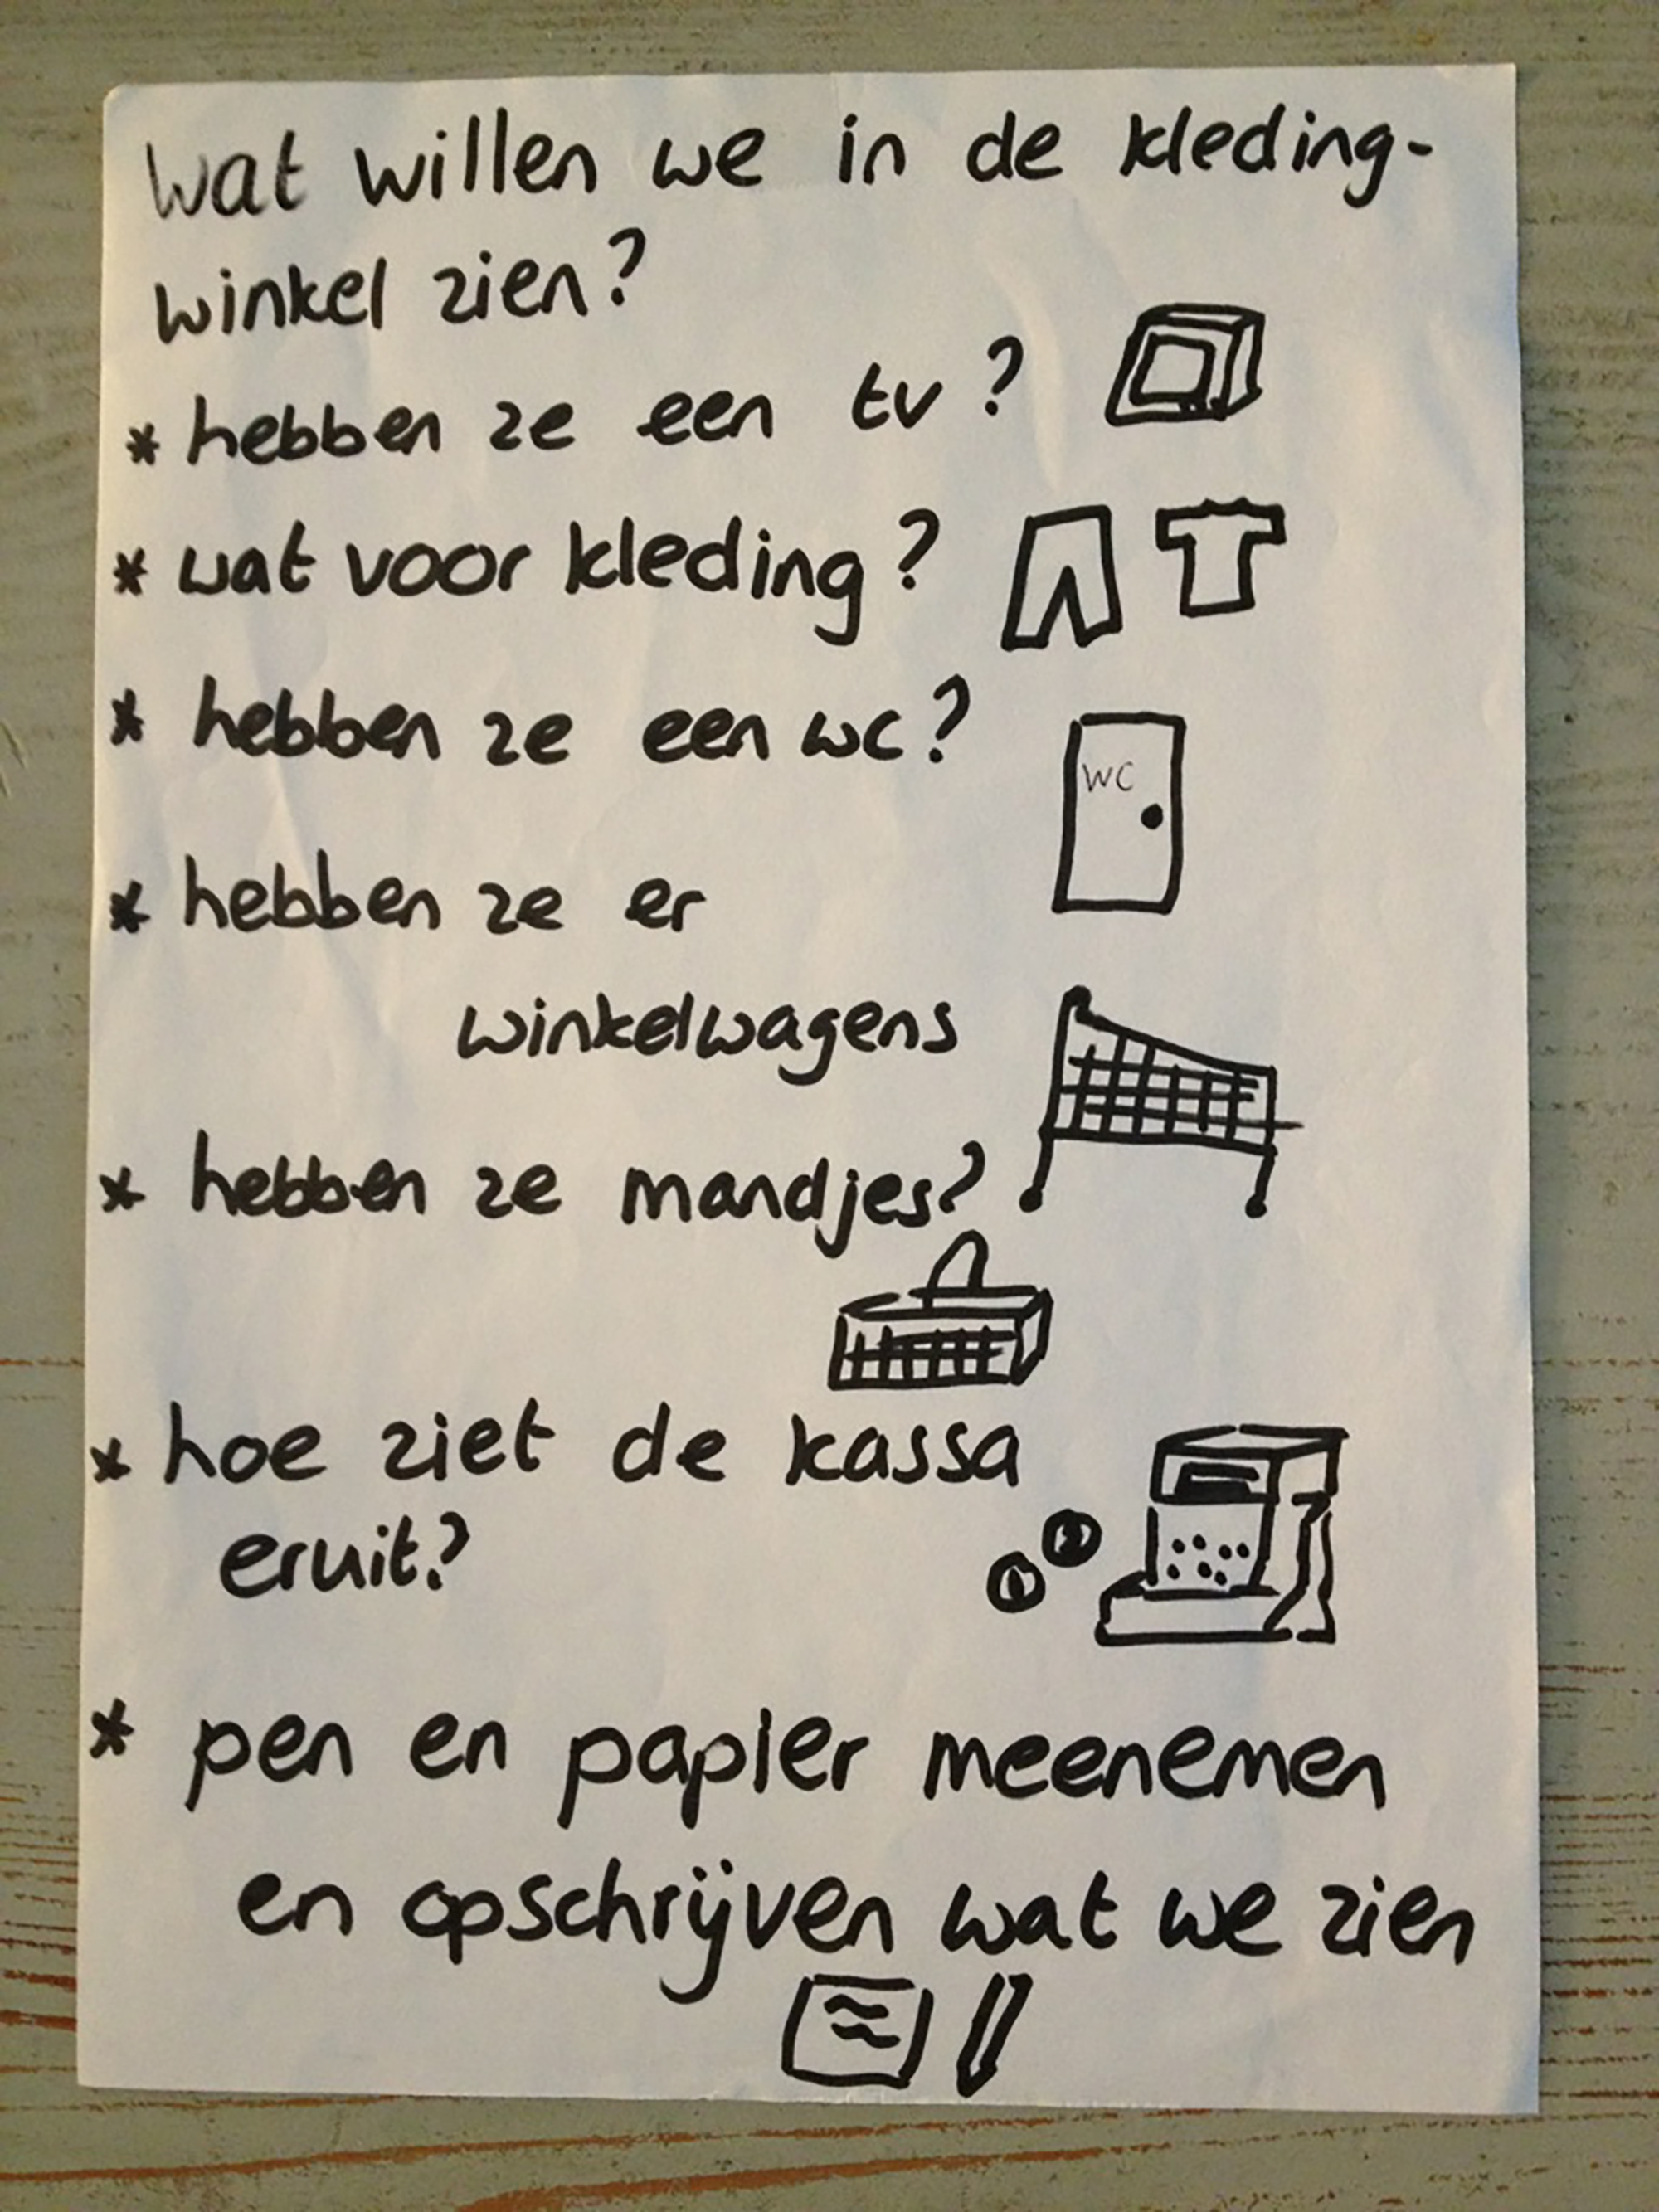 Wat willen we in de kleding-
winkel zien?
* hebben ze een tv?
* wat voor kleding?
* hebben ze een wc?
WC
* hebben ze er
winkelwagens
* hebben ze mandjes?
* hoe ziet de kassa
eruit?
1 2
* pen en papier meenemen
en opschrijven wat we zien